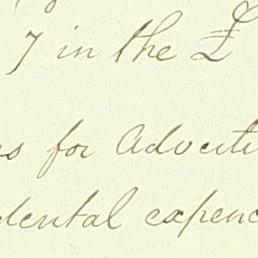 7 in the £
s for Adverti
dental expenc